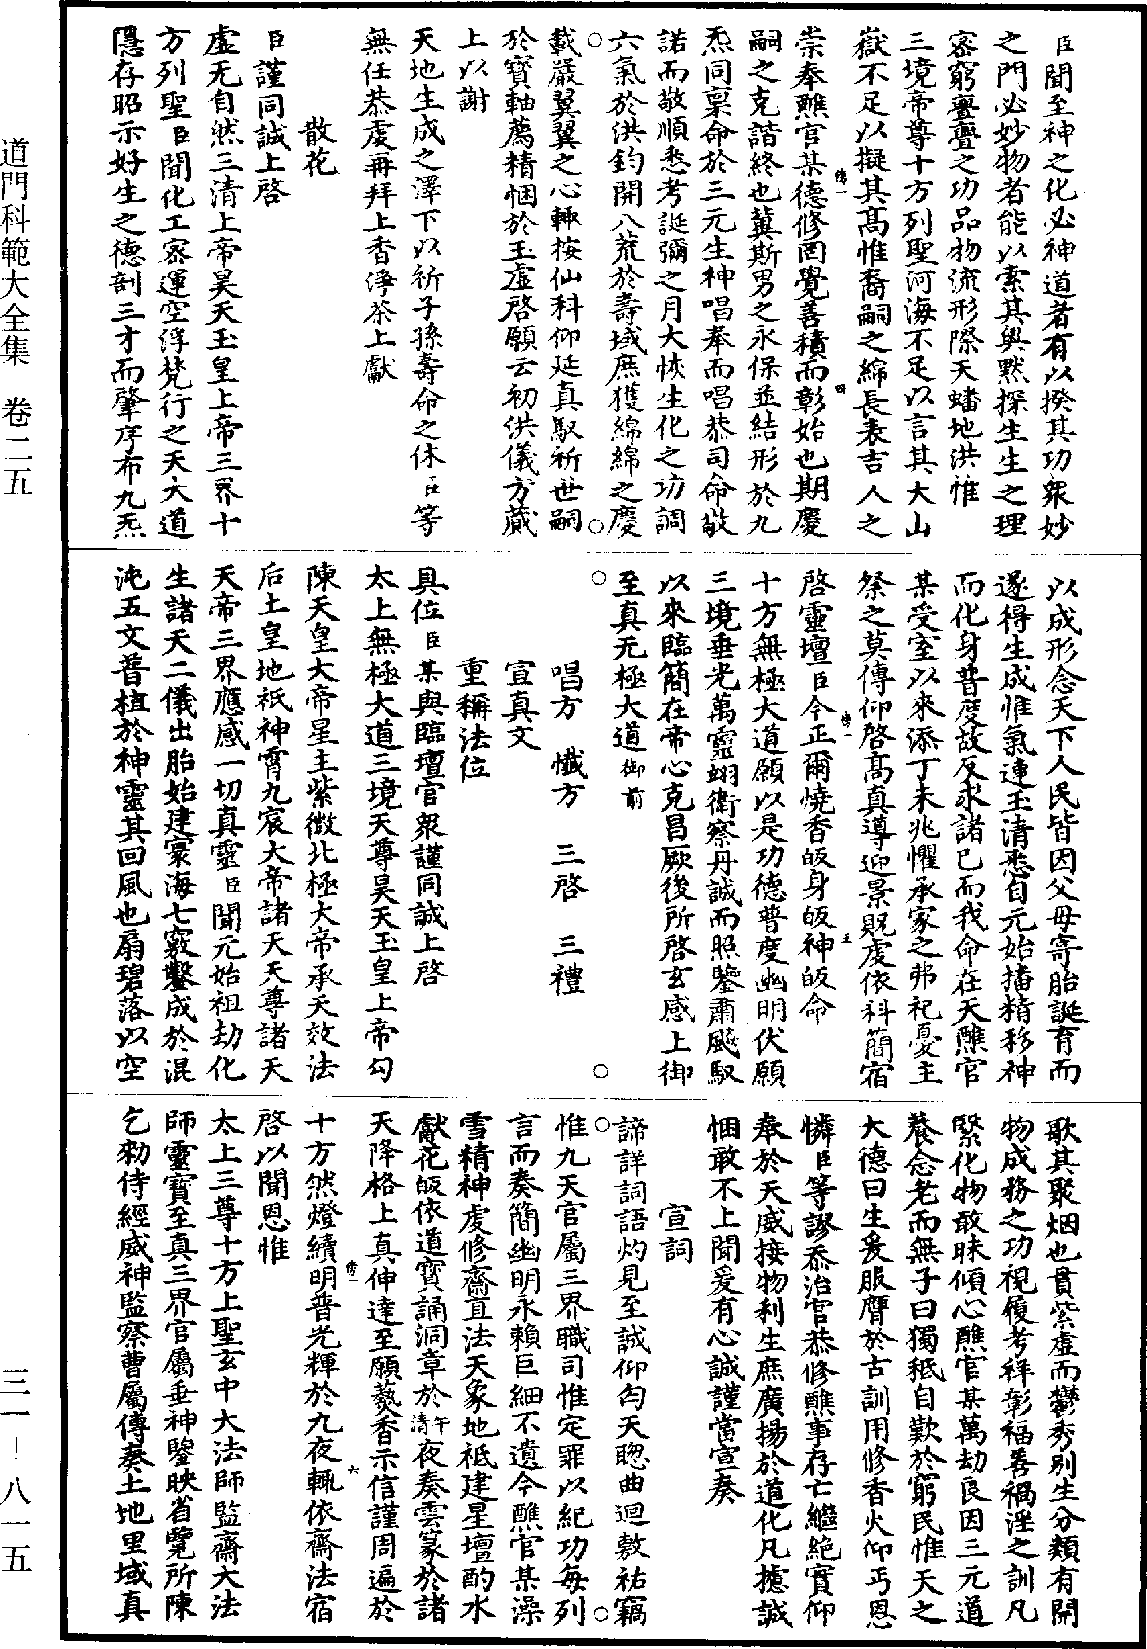 道門科範大全集 卷二五
三一—八一五
臣聞至神之化必神道者有以揆其功衆妙
之門必妙物者能以索其奧默探生生之理
密窮亹亹之功品物流形際天蟠地洪惟
三境帝尊十方列聖河海不足以言其大山
嶽不足以擬其高惟裔嗣之綿長表吉人之
崇奉醮官某德修罔覺善積而彰始也期慶
嗣之克諧終也冀斯男之永保並結形於九
炁同稟命於三元生神唱奉而唱恭司命敬
諾而敬順悉考誕彌之月大恢生化之功調
六氣於洪鈞開八荒於壽域庶獲綿綿之慶
載嚴翼翼之心輒按仙科仰延真馭祈世嗣
於寶軸薦精悃於玉虛啓願云初洪儀方蕆
上以謝
天地生成之澤下以祈子孫壽命之休臣等
無任恭虔再拜上香淨茶上獻
散花
臣謹同誠上啓
虛无自然三清上帝昊天玉皇上帝三界十
方列聖臣聞化工密運空浮梵行之天大道
隱存昭示好生之德剖三才而肇序布九炁
以成形念天下人民皆因父母寄胎誕育而
遂得生成惟氣連玉清悉自元始播精移神
而化身普度故反求諸己而我命在天醮官
某受室以來添丁未兆懼承家之弗祀憂主
祭之莫傳仰啓高真導迎景貺虔依科簡宿
啓靈壇臣今正爾燒香皈身皈神皈命
十方無極大道願以是功德普度幽明伏願
三境垂光萬靈翊衛察丹誠而照鑒肅飈馭
以來臨簡在帝心克昌厥後所啓玄感上御
至真无極大道御前
唱方 懺方 三啓 三禮
宣真文
重稱法位
具位臣某與臨壇官衆謹同誠上啓
太上無極大道三境天尊昊天玉皇上帝勾
陳天皇大帝星主紫微北極大帝承天效法
后土皇地祇神霄九宸大帝諸天天尊諸天
天帝三界應感一切真靈臣聞元始祖劫化
生諸天二儀出胎始建寰海七竅鑿成於混
沌五文普植於神靈其回風也扇碧落以空
歌其聚烟也貫紫虛而鬱秀別生分類有開
物成務之功視履考祥彰福善禍淫之訓凡
緊化物敢昧傾心醮官某萬劫良因三元道
養念老而無子曰獨秪自歎於窮民惟天之
大德曰生爰服膺於古訓用修香火仰丐恩
憐臣等謬忝治官恭修醮事存亡繼絕實仰
奉於天威接物利生庶廣揚於道化凡攄誠
悃敢不上聞爰有心誠謹當宣奏
宣詞
諦詳詞語灼見至誠仰匄天聰曲迴敷祐竊
惟九天官屬三界職司惟定罪以紀功每列
言而奏簡幽明永賴巨細不遺今醮官某澡
雪精神虔修齋直法天象地祇建星壇酌水
獻花皈依道寶誦洞章於清午夜奏雲篆於諸
天降格上真伸達至願爇香示信謹周遍於
十方然燈續明普光輝於九夜輒依齋法宿
啓以聞恩惟
太上三尊十方上聖玄中大法師監齋大法
師靈寶至真三界官屬垂神鑒映省覽所陳
乞勑侍經威神監察曹屬傳奏土地里域真